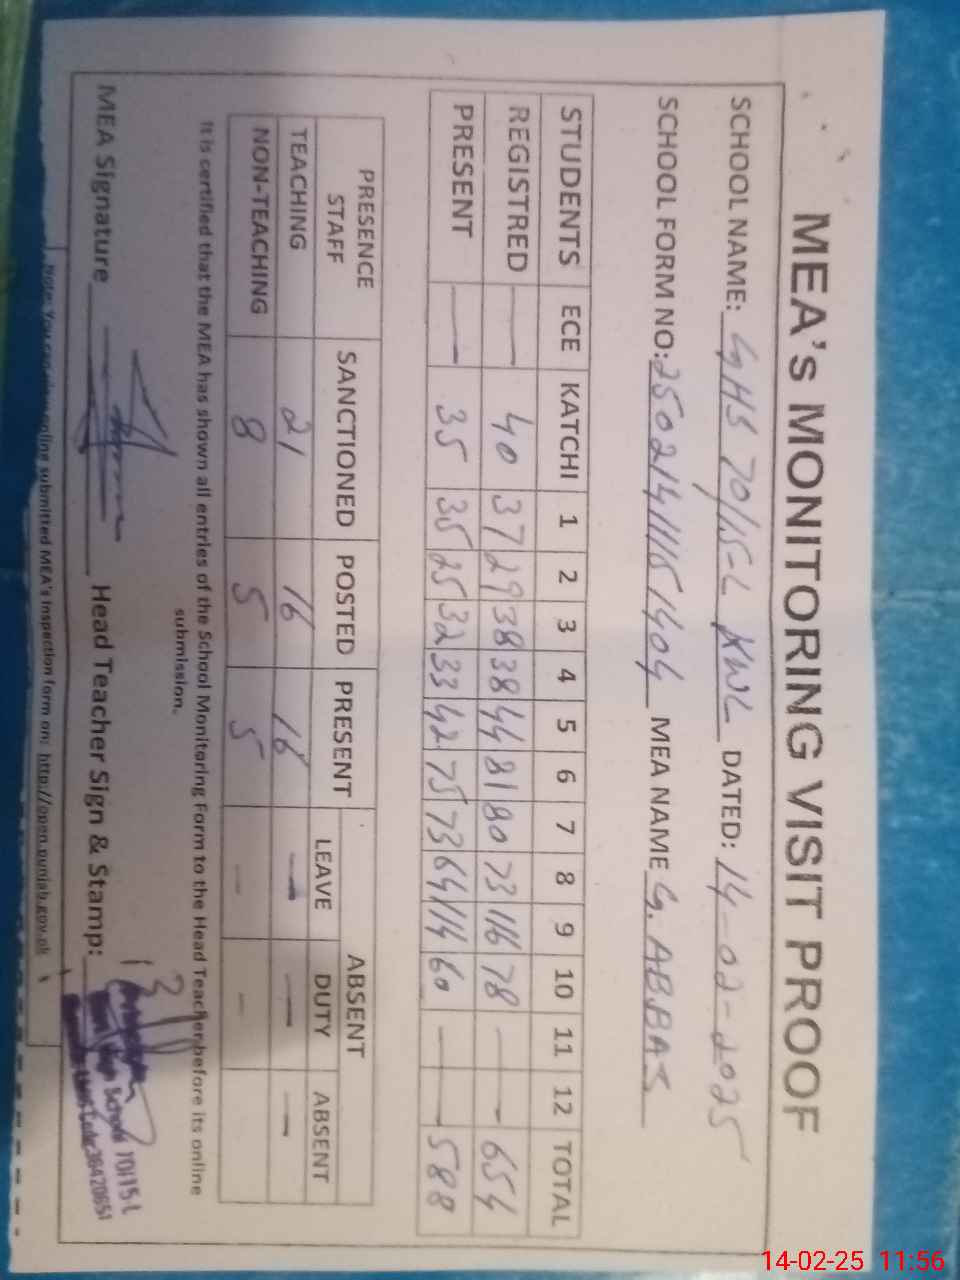 MEA's MONITORING VISIT PROOF
SCHOOL NAME: GHS 70/15-L KWL DATED: 14-02-2025
SCHOOL FORM NO: 25021411151404 MEA NAME G. ABBAS
STUDENTS ECE KATCHI 1 2 3 4 5 6 7 8 9 10 11 12 TOTAL
REGISTRED — 40 37 29 38 38 44 81 80 73 116 78 — — 654
PRESENT — 35 35 25 32 33 42 75 73 64 114 60 — — 588
PRESENCE STAFF SANCTIONED POSTED PRESENT ABSENT
LEAVE DUTY ABSENT
TEACHING 21 16 16 — — —
NON-TEACHING 8 5 5 — —
It is certified that the MEA has shown all entries of the School Monitoring Form to the Head Teacher before its online
submission.
MEA Signature Head Teacher Sign & Stamp:
High School 70/15-L
Code 36420651
Note: You can view online submitted MEA's Inspection form on: http://open.punjab.gov.pk
14-02-25 11:56